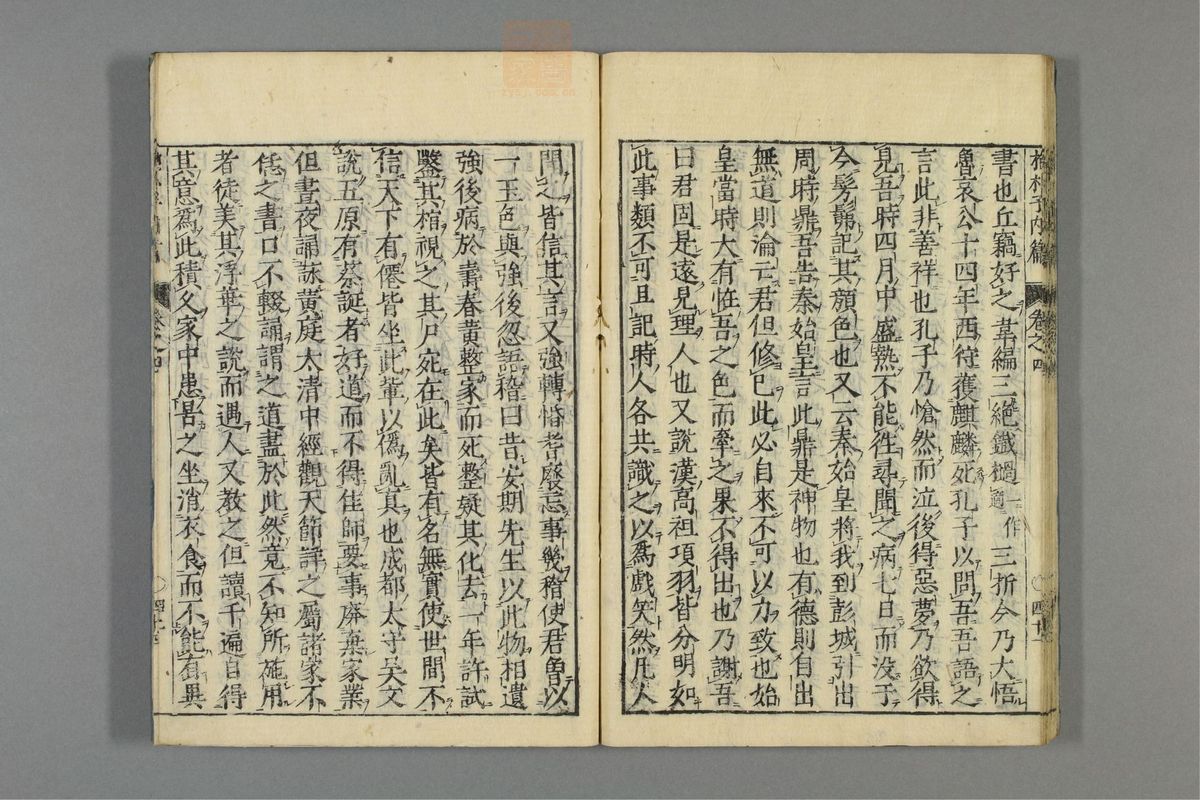 抱朴子內篇 卷之四
書也丘竊好之韋編三絕鐵檛一作擿三折今乃大悟
魯哀公十四年西狩獲麒麟死孔子以問吾吾語之
言此非善祥也孔子乃愴然而泣後得惡夢乃欲得
見吾時四月中盛熱不能往尋聞之病七日而沒于
今髣髴記其顏色也又云秦始皇將我到彭城引出
周時鼎吾告秦始皇言此鼎是神物也有德則自出
無道則淪亡君但修已此必自來不可以力致也始
皇當時大有怪吾之色而牽之果不得出也乃謝吾
曰君固是遠見理人也又說漢高祖項羽皆分明如
此事類不可且記時人各共識之以爲戲笑然凡人
聞之皆信其言又強轉惛耄廢忘事幾稽使君曾以
一玉色與強後忽語稽曰昔安期先生以此物相遺
強後病於壽春黃整家而死整疑其化去一年許試
鑿其棺視之其尸宛在此矣皆有名無實使世間不
信天下有僊皆坐此輩以僞亂真也成都太守吳文
說五原有蔡誕者好道而不得佳師要事廢棄家業
但晝夜誦詠黃庭太清中經觀天節詳之屬諸家不
急之書口不輟誦謂之道盡於此然竟不知所施用
者徒美其浮華之說而遇人又教之但讀千遍自得
其意爲此積久家中患苦之坐消衣食而不能有異
卷之四